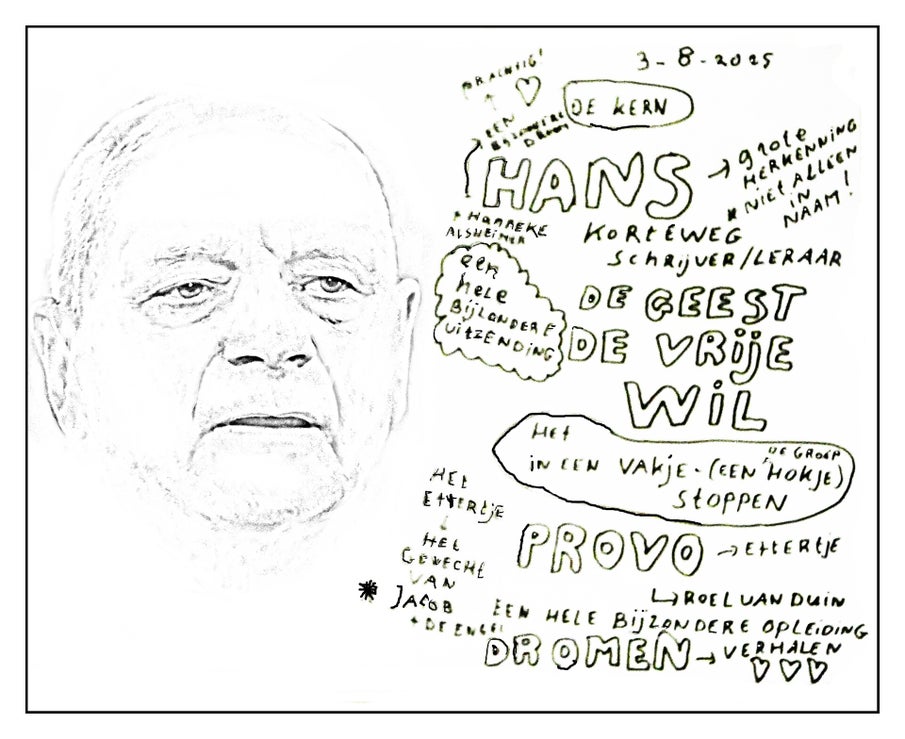 3-8-2025
PRACHTIG!
DE KERN
EEN
BIJZONDERE
DROOM
HANS
→ grote
HERKENNING
* NIET ALLEEN
IN
NAAM!
+ HANNEKE
ALSHEIMER
KORTEWEG
SCHRIJVER/LERAAR
een
hele
BIJZONDERE
UITZENDING
DE GEEST
DE VRIJE
WIL
HET
DE GROEP
IN EEN VAKJE-(EEN 'HOKJE)
STOPPEN
HET
ETTERTJE
↓
HET
GEVECHT
VAN
* JACOB
+ DE ENGEL
PROVO → ETTERTJE
↳ ROEL VAN DUIN
EEN HELE BIJZONDERE OPLEIDING
DROMEN → VERHALEN